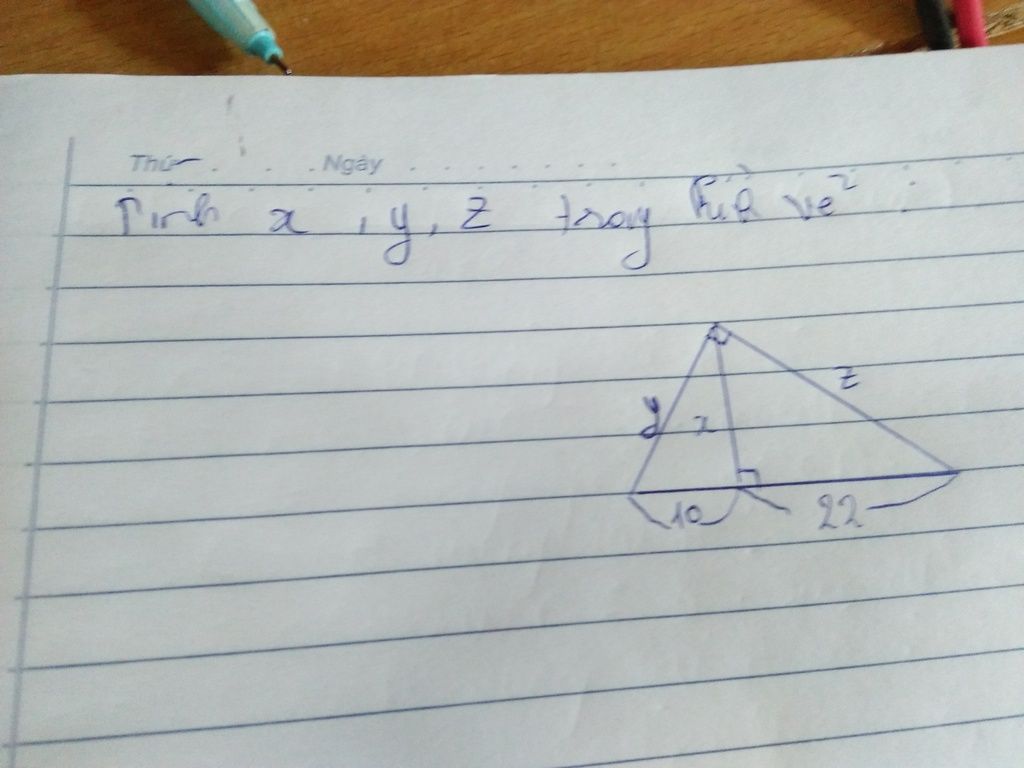 Thứ . . . . Ngày . . . . . . . .
Tính x , y , z trong hình vẽ :
y x z
10 22